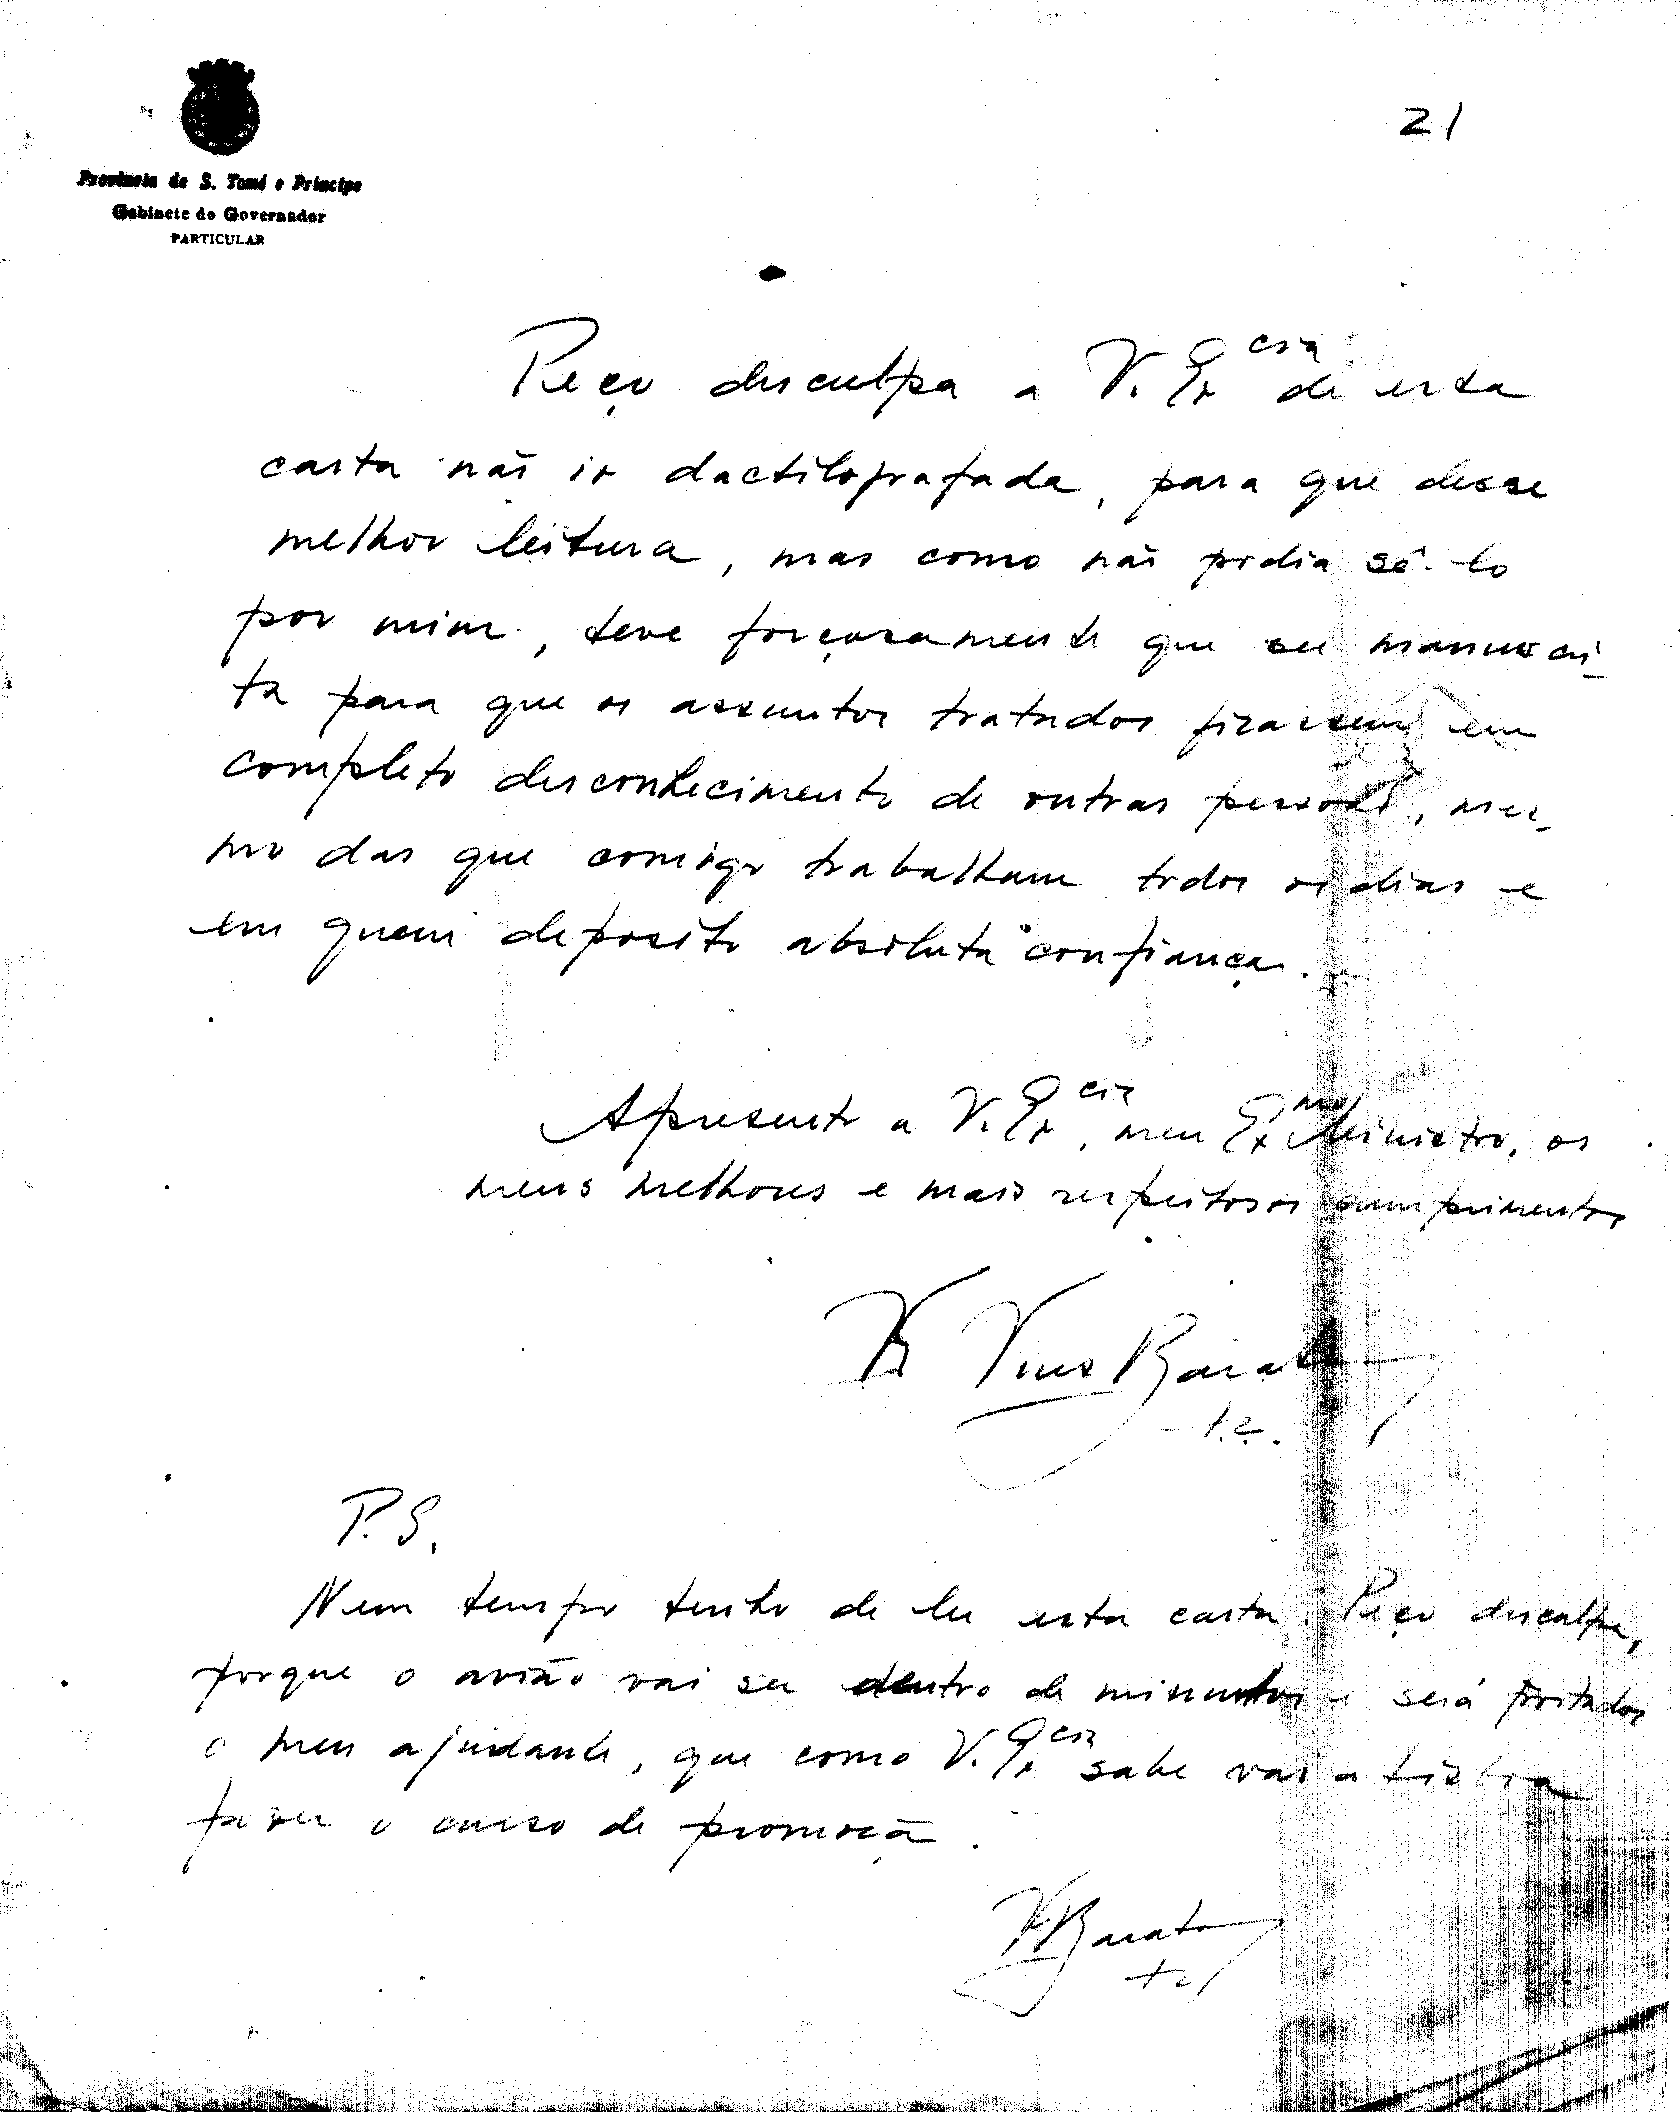 21
Província de S. Tomé e Príncipe
Gabinete do Governador
PARTICULAR
Peço desculpa a V. Ex.cia de esta
carta não ir dactilografada, para que desse
melhor leitura, mas como não podia sê-lo
por mim, teve forçosamente que ser manuscri-
ta para que os assuntos tratados ficassem em
completo desconhecimento de outras pessoas, mes-
mo das que comigo trabalham todos os dias e
em quem deposito absoluta confiança.
Apresento a V. Ex.cia, meu Ex.mo Ministro, os
meus melhores e mais respeitosos cumprimentos
Vires Barata
P.S.
Nem tempo tenho de ler esta carta. Peço desculpa,
porque o avião vai ser dentro de minutos e será portador
o meu ajudante, que como V. Ex.cia sabe vai a Lisboa
fazer o curso de promoção.
Barata